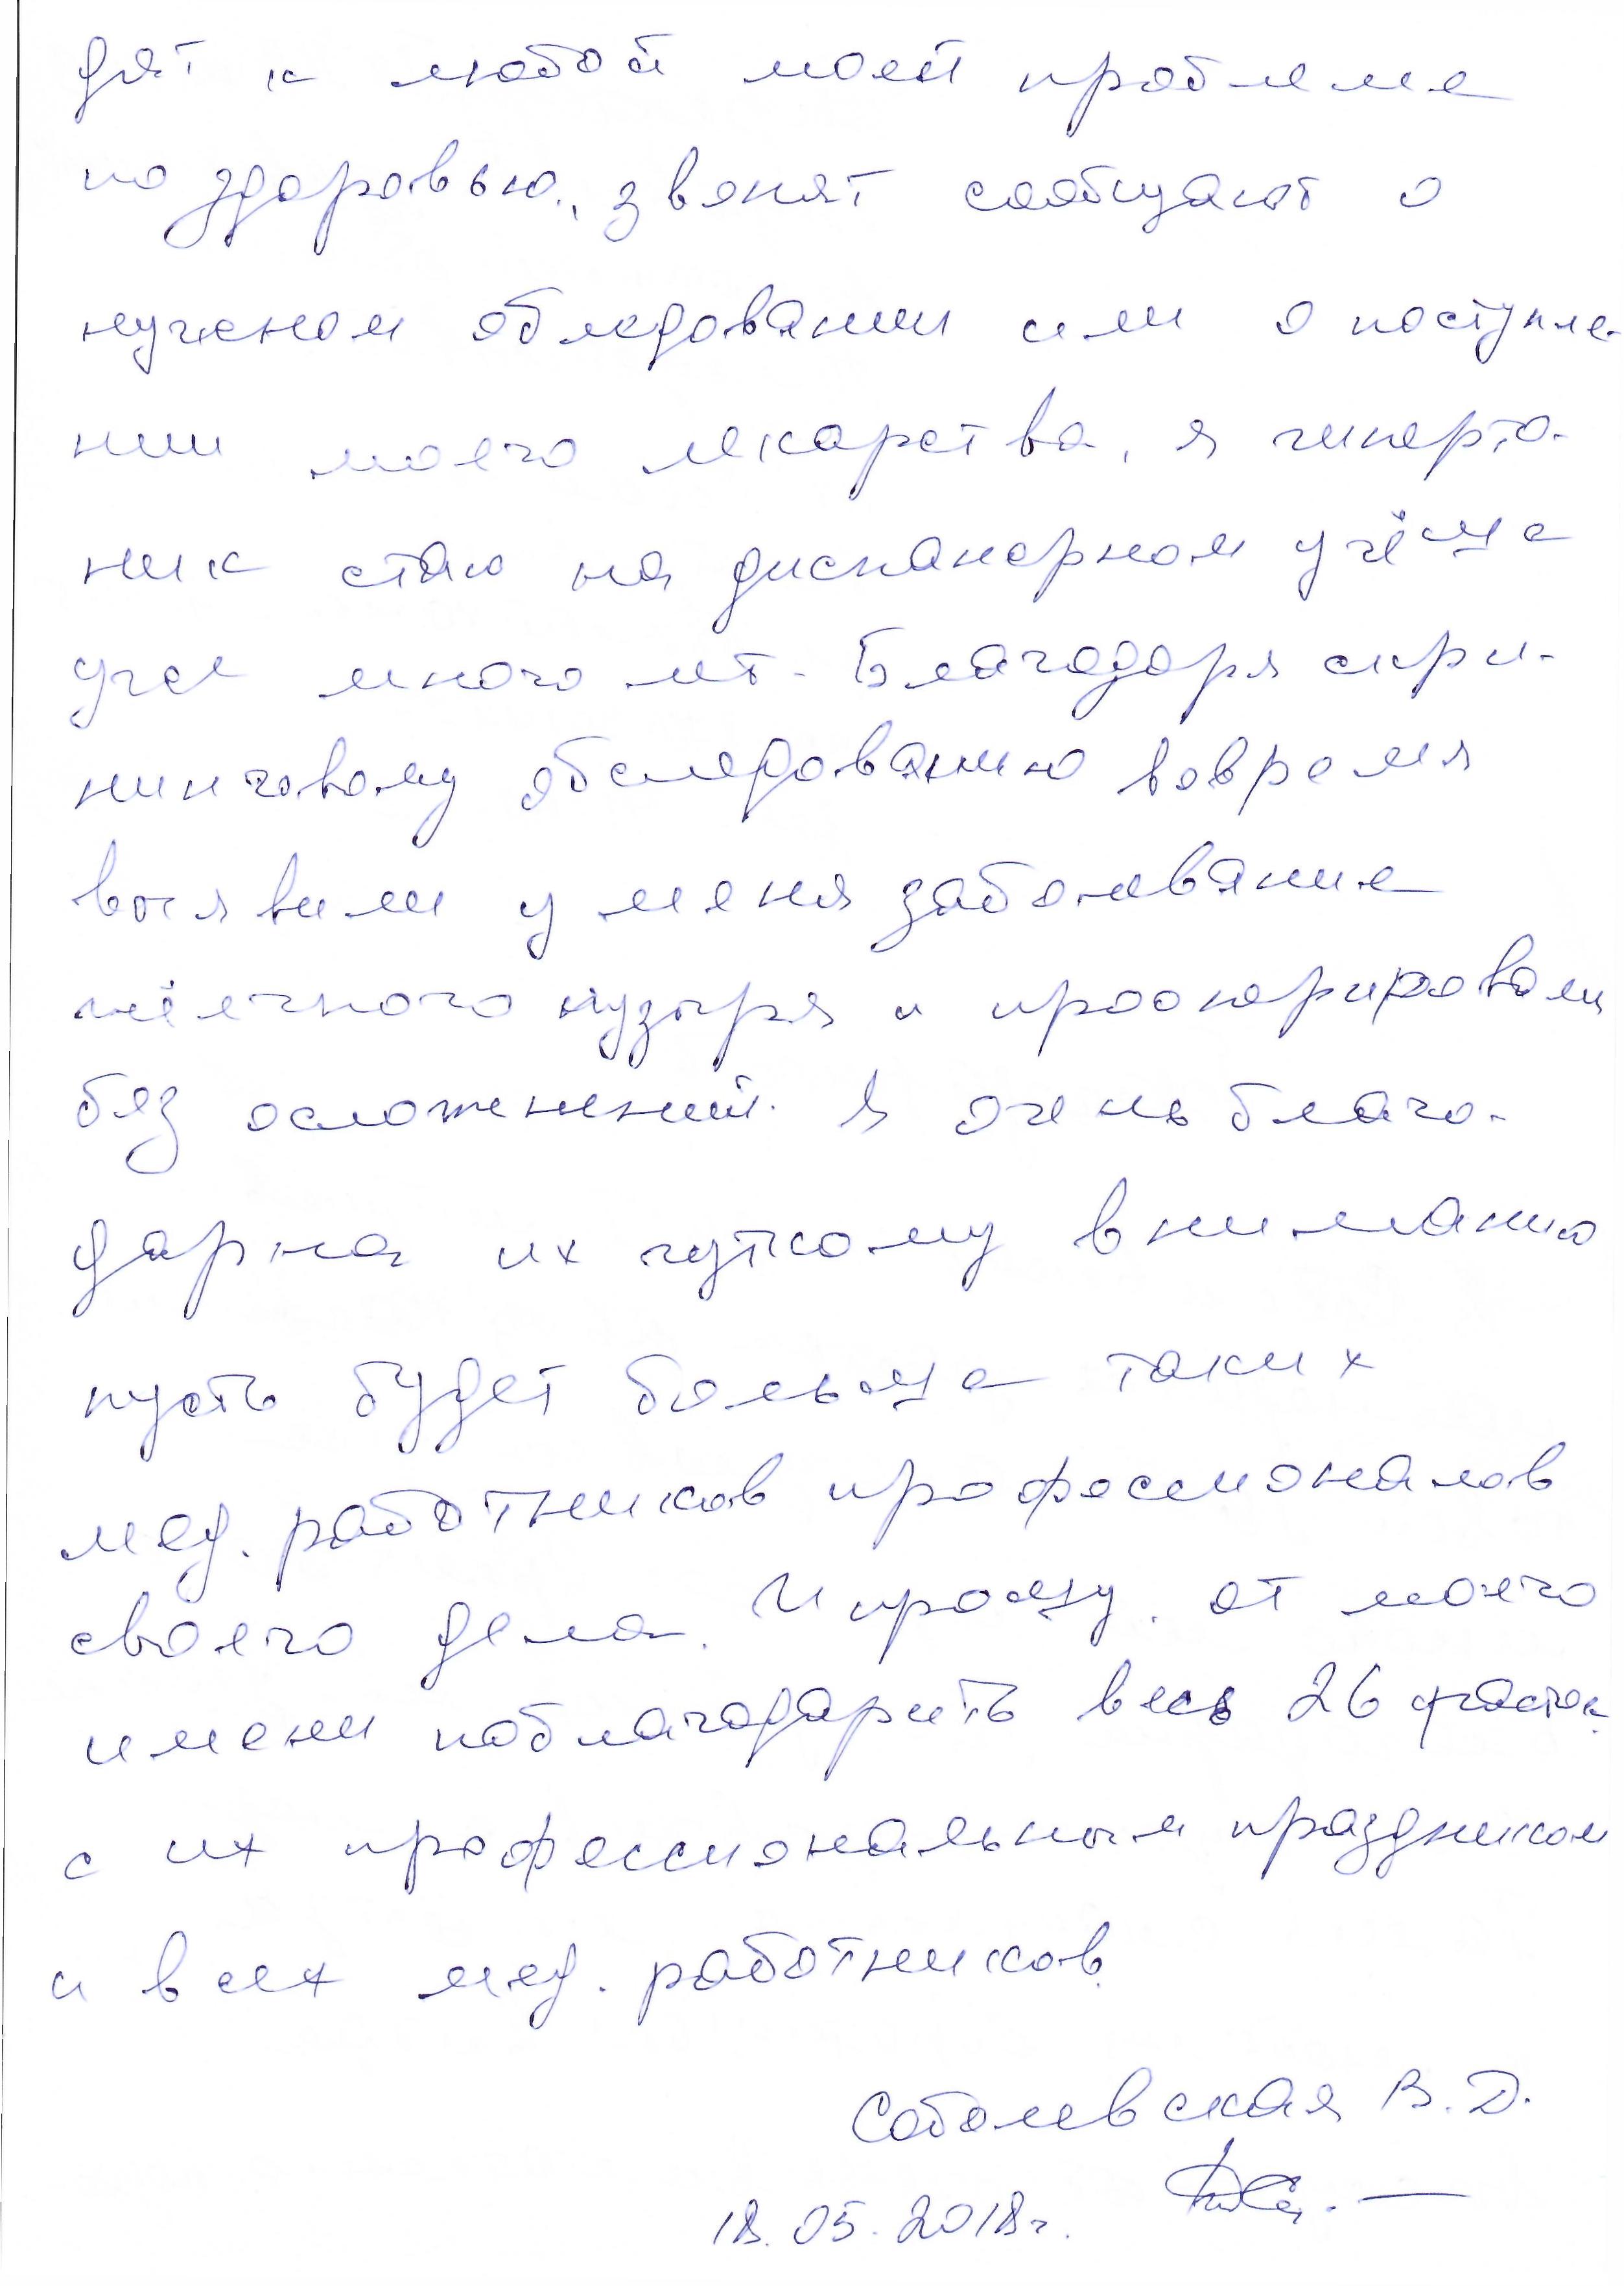 дят к любой моей проблеме
по здоровью., звонят сообщают о
нужном обледовании или о поступле-
нии моего лекарства, я гиперто-
ник стаю на диспансерном учёте
уже много лет. Благодаря скри-
нинговому обследованию вовремя
выявили у меня заболевание
жёлчного пузыря и прооперировали
без осложнений. Я очень благо-
дарна их чуткому вниманию
пусть будет больше таких
мед. работников профессионалов
своего дела. И прошу от моего
имени поблагодарить весь 26 участок
с их профессиональным праздником
и всех мед. работников.
Соболевская В. Д.
18. 05. 2018г.